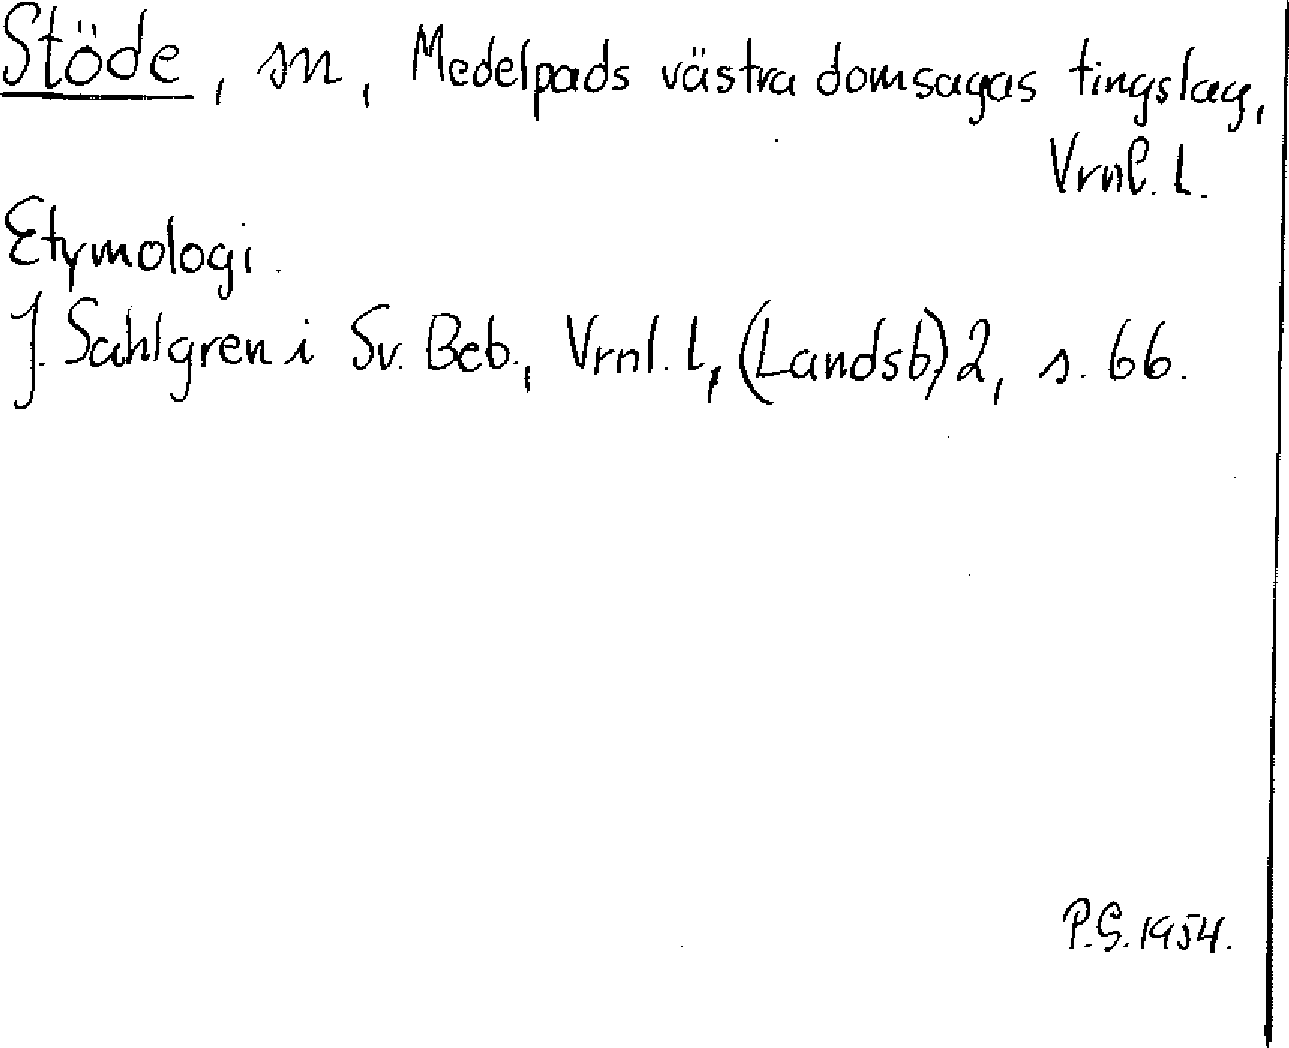 Stöde, sn, Medelpads västra domsagas tingslag,
Vrnl. L.
Etymologi.
J. Sahlgren i Sv. Beb., Vrnl. L, (Landsb) 2, s. 66.
P.G. 1954.